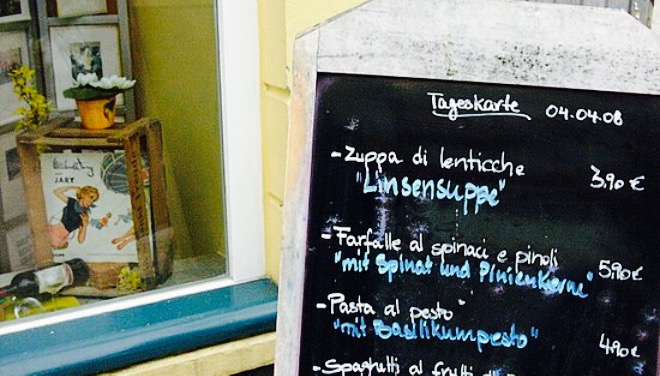 Tageskarte 04.04.08
-Zuppa di lenticche 3,90 €
"Linsensuppe"
-Farfalle al spinaci e pinoli 5,90 €
"mit Spinat und Pinienkerne"
-Pasta al pesto
"mit Basilikumpesto" 4,90 €
-Spaghetti al frutti di
JARY